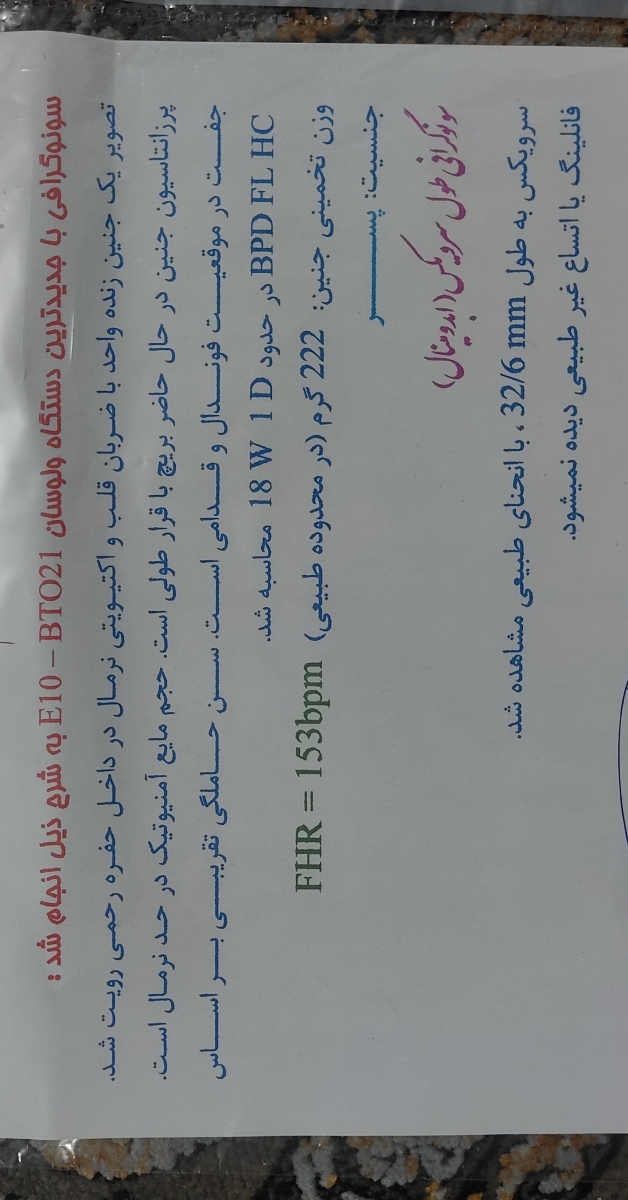 سونوگرافی با جدیدترین دستگاه ولوسان E10 – BTO21 به شرح ذیل انجام شد :
تصویر یک جنین زنده واحد با ضربان قلب و اکتیویتی نرمال در داخل حفره رحمی رویت شد.
پرزانتاسیون جنین در حال حاضر بریچ با قرار طولی است. حجم مایع آمنیوتیک در حد نرمال است.
جفت در موقعیت فوندال و قدامی است. سن حاملگی تقریبی بر اساس
BPD FL HC در حدود 18 W 1 D محاسبه شد.
وزن تخمینی جنین: 222 گرم (در محدوده طبیعی) FHR = 153bpm
جنسیت: پسر
سونوگرافی طول سرویکس (ابدومینال)
سرویکس به طول 32/6 mm ، با انحنای طبیعی مشاهده شد.
فانلینگ یا اتساع غیر طبیعی دیده نمیشود.